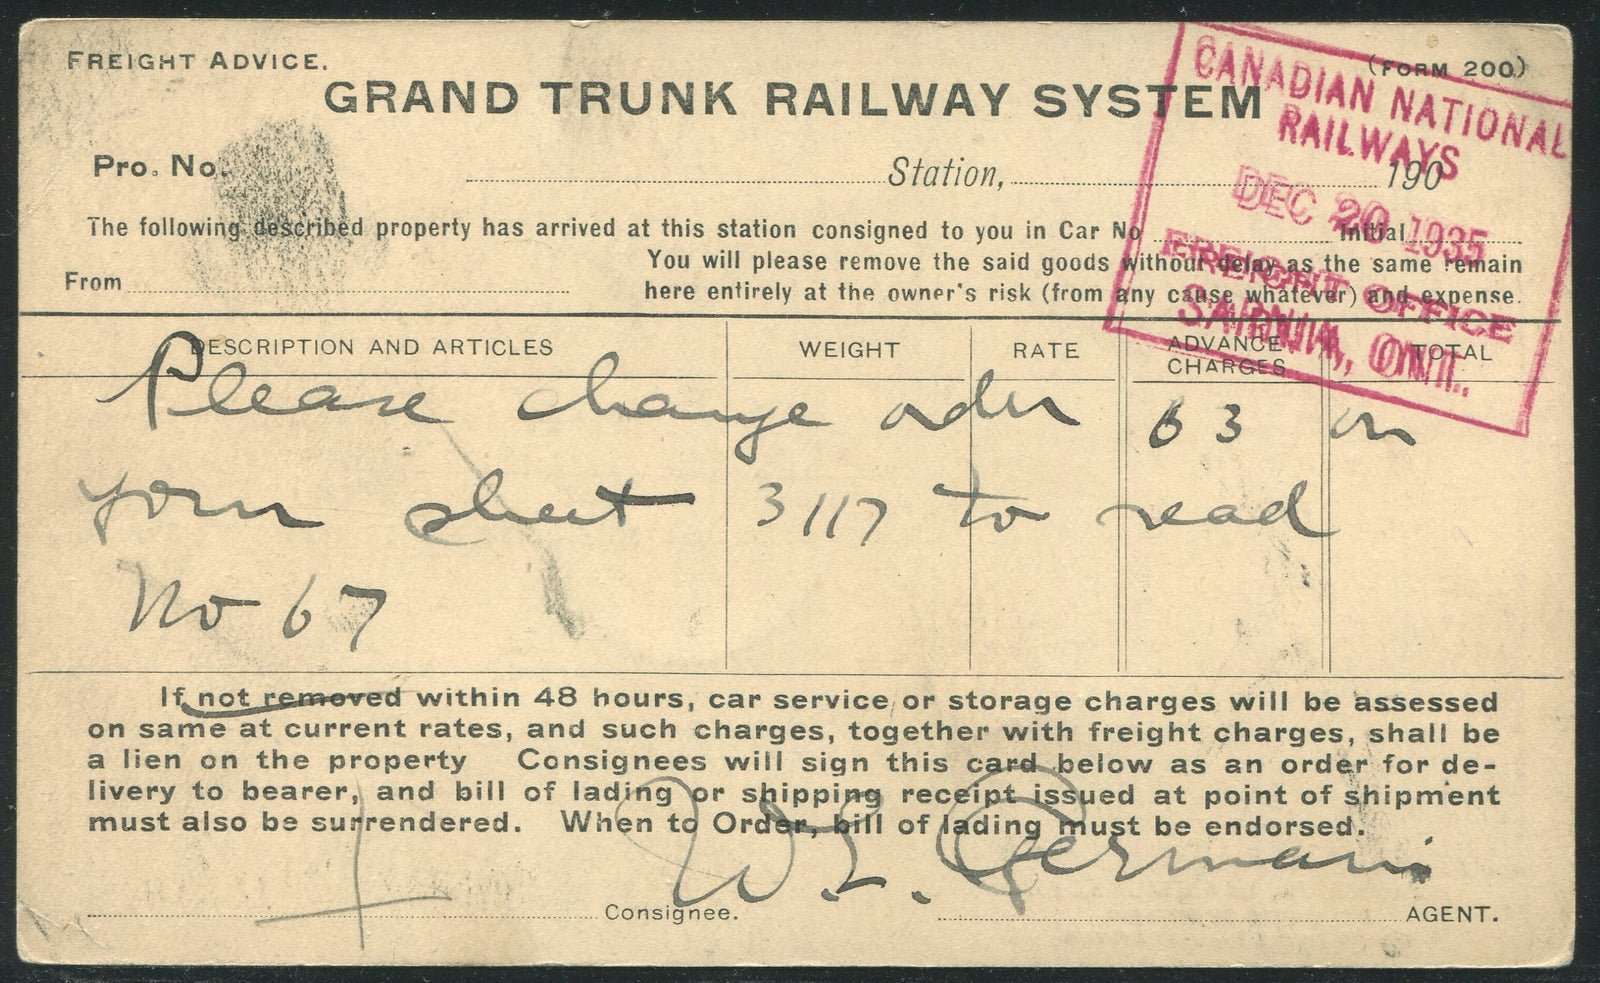 FREIGHT ADVICE.
(FORM 200)
GRAND TRUNK RAILWAY SYSTEM
CANADIAN NATIONAL
RAILWAYS
DEC 20 1935
FREIGHT OFFICE
SARNIA, ONT.
Pro. No. Station, 190
The following described property has arrived at this station consigned to you in Car No Initial
You will please remove the said goods without delay as the same remain
From here entirely at the owner's risk (from any cause whatever) and expense.
DESCRIPTION AND ARTICLES WEIGHT RATE ADVANCE CHARGES TOTAL
Please change order 63 on
your sheet 3117 to read
No 67
If not removed within 48 hours, car service or storage charges will be assessed
on same at current rates, and such charges, together with freight charges, shall be
a lien on the property Consignees will sign this card below as an order for de-
livery to bearer, and bill of lading or shipping receipt issued at point of shipment
must also be surrendered. When to Order, bill of lading must be endorsed.
W. L. Germain
Consignee. AGENT.